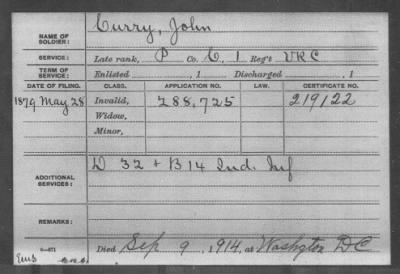 NAME OF SOLDIER: Curry, John
SERVICE: Late rank, P Co. C, 1 Reg't VRC
TERM OF SERVICE: Enlisted , 1 Discharged , 1
DATE OF FILING. CLASS. APPLICATION NO. LAW. CERTIFICATE NO.
1879 May 28 Invalid, 288,725 219122
Widow,
Minor,
ADDITIONAL SERVICES: D 32 + B 14 Ind. Inf
REMARKS:
Died Sep 9, 1914, at Washgton DC